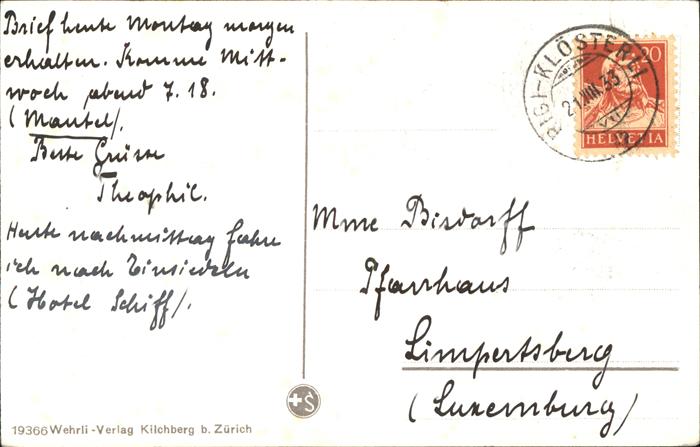 Brief heute Montag morgen
erhalten. Komme Mitt-
woch abend 7.18.
(Mantel).
Beste Grüsse
Theophil.
Heute nachmittag fahre
ich nach Einsiedeln
(Hotel Schiff).
19366 Wehrli-Verlag Kilchberg b. Zürich
RIGI-KLÖSTERLI
21.VIII.33
20
HELVETIA
Mme Bisdorff
Pfarrhaus
Limpertsberg
(Luxemburg)